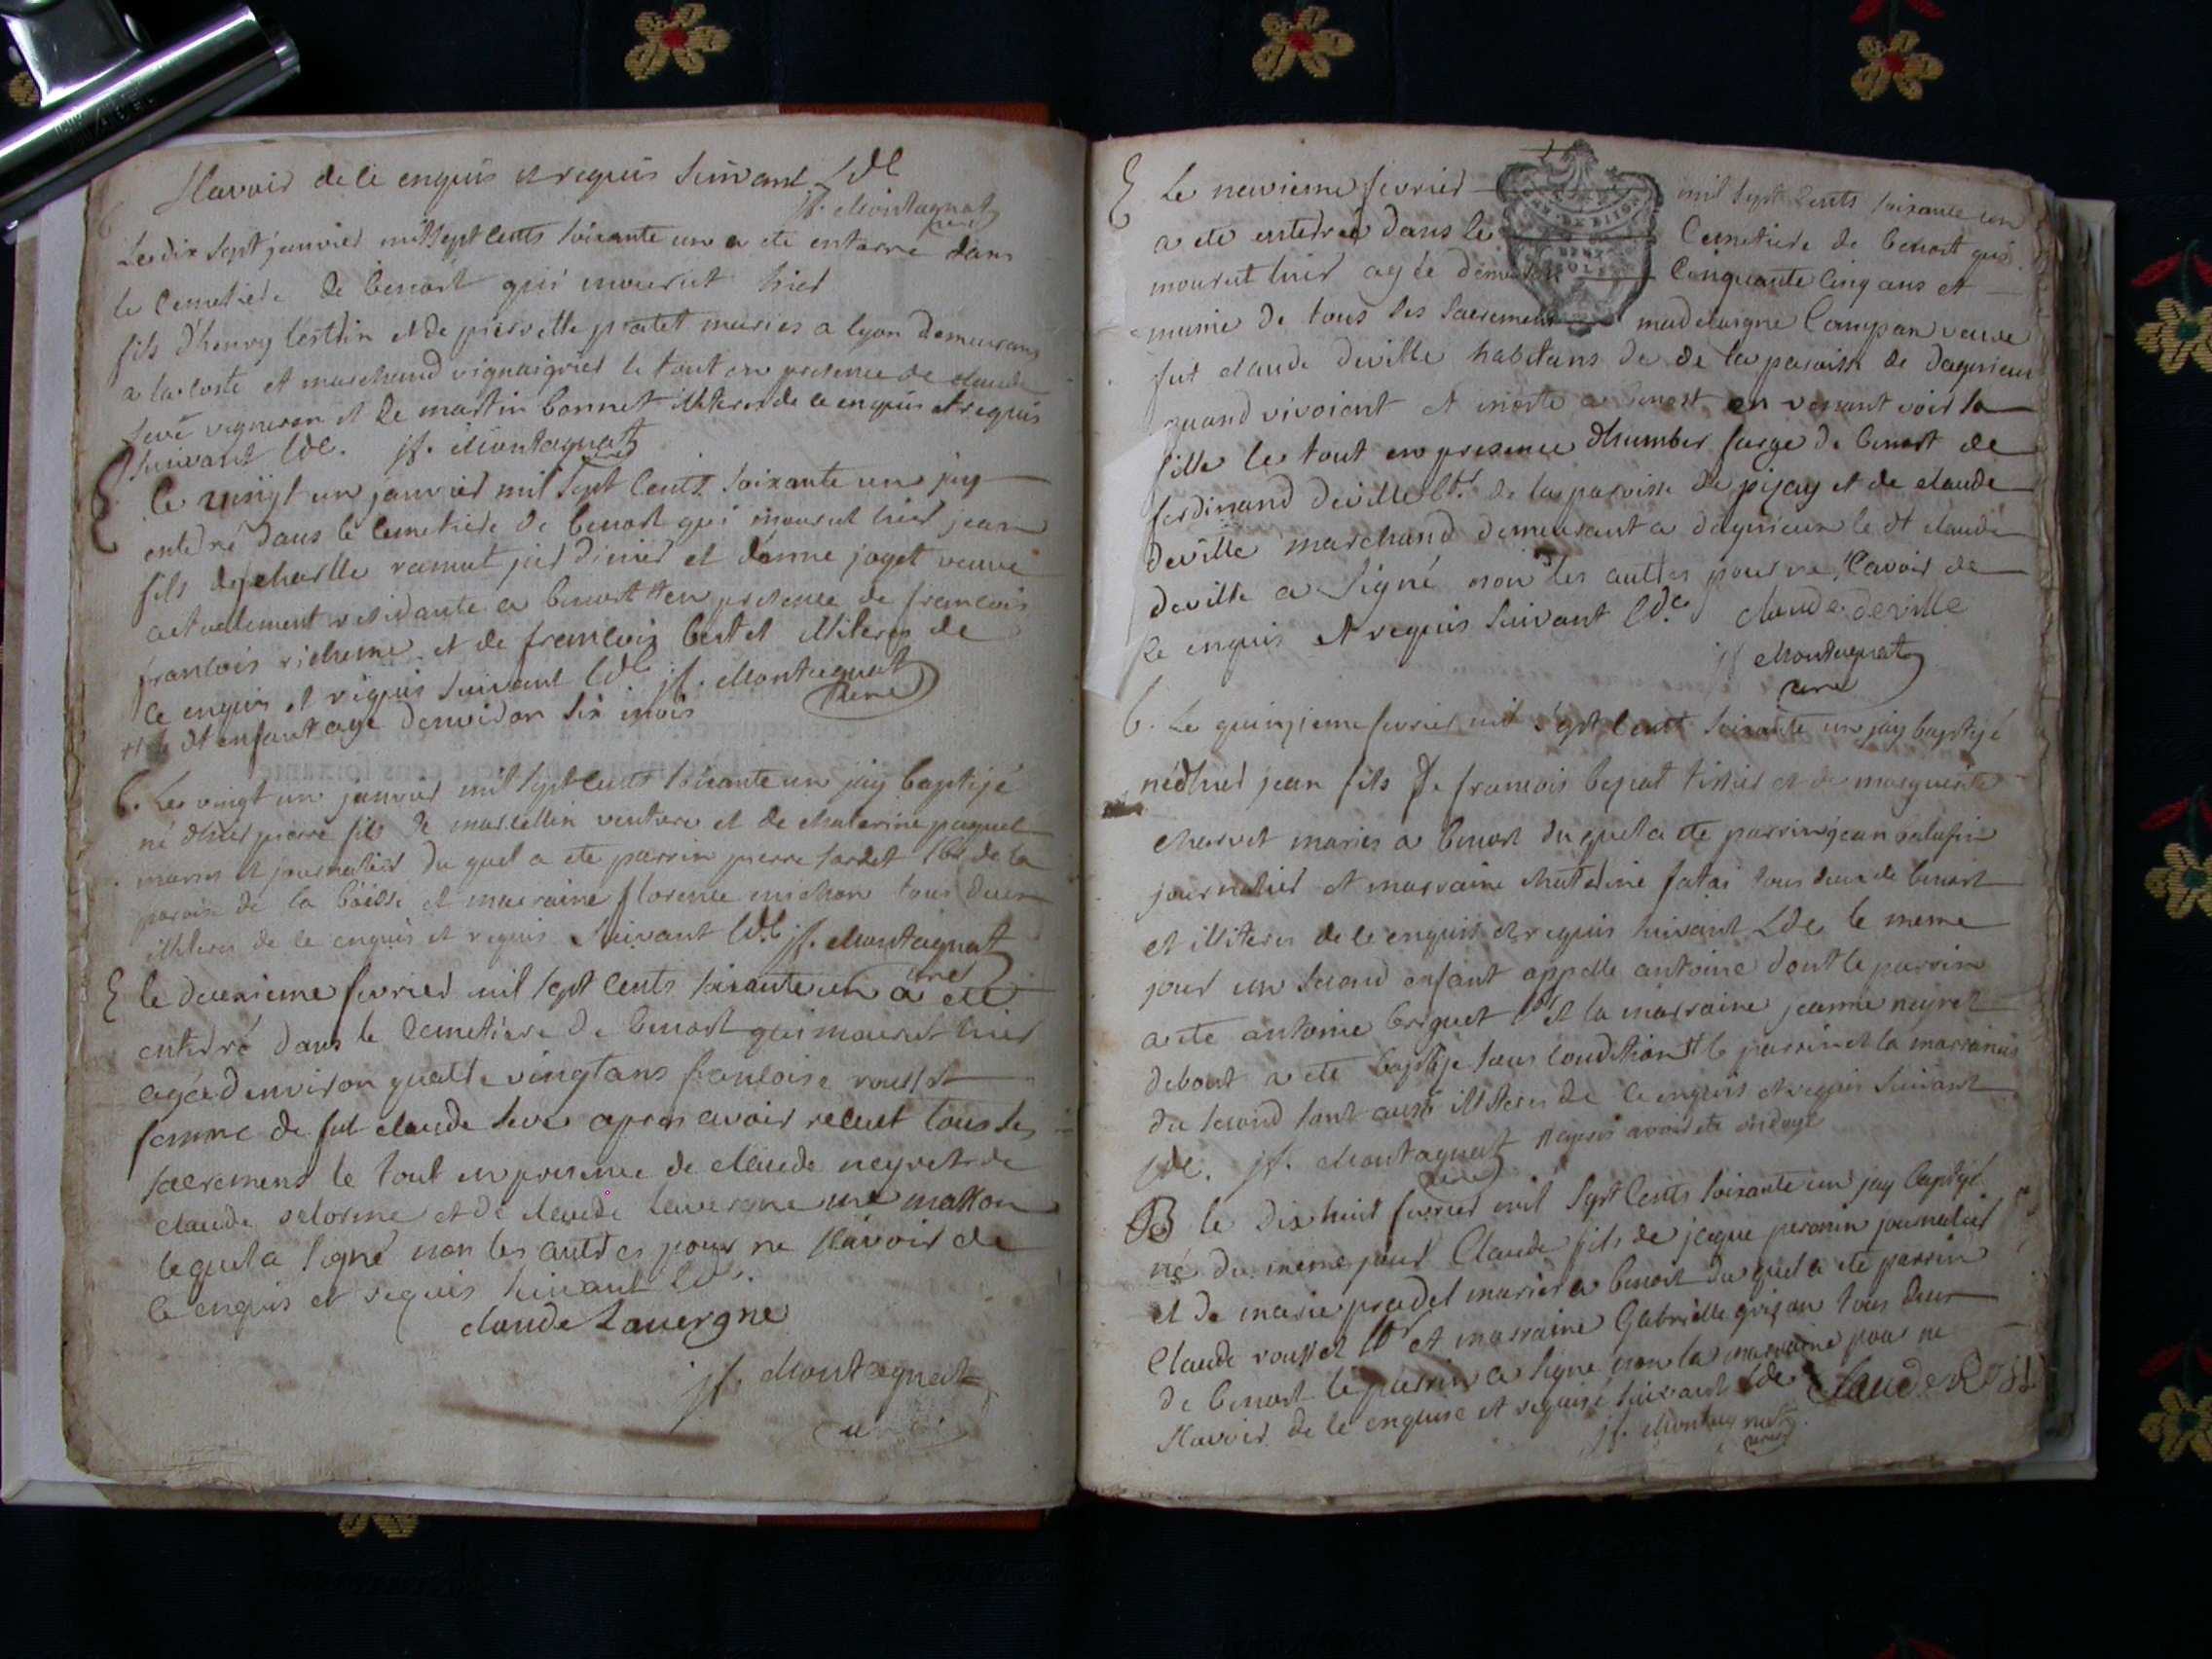 sçavoir de ce enquis et requis suivant l'de
jf. Montagnat
curé
Le dix sept janvier mil sept cents soixante un a ete enterré dans
le cemetiere de benost qui mourut hier
fils d'henry et de pierrette mariés a lyon demeurans
a la coste et marchand vignaigrier le tout en presence de claude
seve vigneron et de martin bonnet illiteres de ce enquis et requis
suivant l'de. jf. Montagnat
curé
E le vingt un janvier mil sept cents soixante un jay
enterré dans le cemetiere de benost qui mourut hier jean
fils de charlle ramut jardinier et danne joget veuve
actuellement residante a benost # en presence de francois
francois richeme et de francois bertet illiteres de
ce enquis et requis suivant l'de jf. Montagnat
curé
# le dt enfant agé denviron six mois
b. Le vingt un janvier mil sept cents soixante un jay baptisé
né d'hier pierre fils de marcellin venture et de chaterine paquet
mariés et journalier du quel a ete parrin pierre lardet de la
paroisse de la boisse et marraine florence michon tous deux
illiteres de ce enquis et requis suivant l'de jf. Montagnat
curé
E le deuxieme fevrier mil sept cents soixante un a ete
enterré dans le cemetiere de benost qui mourut hier
agée d'environ quattre vingt ans francoise rousset
femme de fut claude seve apres avoir recüet tous les
sacremens le tout en presence de claude neyret de
claude delorme et de claude lavergne me masson
lequel a signé non les autres pour ne sçavoir de
ce enquis et requis suivant l'de.
claude Lavergne
jf. Montagnat
E Le neuvieme fevrier mil sept cents soixante un
a ete enterrée dans le cemetiere de benost qui
mourut hier agée denviron cinquante cinq ans et
munie de tous les sacremens madelaigne Campan veuve
fut claude deville habitans de de la paroisse de dagnieux
quand vivoient et morte a benost en venant voir sa
fille le tout en presence d'humber farge de benost de
ferdinand deville de la paroisse de pisay et de claude
deville marchand demeurant a dagnieux le dt claude
deville a signé non les autres pour ne sçavoir de
ce enquis et requis suivant l'de claude deville
jf Montagnat
curé
b. Le quinzieme fevrier mil sept cents soixante un jay baptisé
né d'hier jean fils de francois bepat tissier et de marguerite
charvet mariés a benost du quel a ete parrin jean
journalier et marraine chaterine fatai tous deux de benost
et illiteres de ce enquis et requis suivant l'de le meme
jour un second enfant appellé antoine dont le parrin
a ete antoine briquet et la marraine jeanne neyret
debout a ete baptisé sous condition # le parrin et la marraine
du second sont aussi illiteres de ce enquis et requis suivant
l'de. jf. Montagnat # apres avoir ete ondoyé
curé
B le dix huit fevrier mil sept cents soixante un jay baptisé
né du meme jour Claude fils de jaque peronin journalier
et de marie pradel mariés a benost du quel a ete parrin
Claude rousset et marraine Gabrielle grison tous deux
de benost le parrin a signé non la marraine pour ne
sçavoir de ce enquise et requise suivant l'de Claude Ross
jf. Montagnat
curé